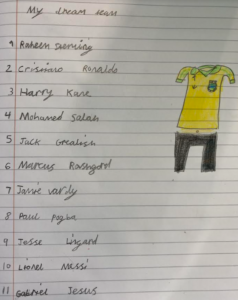 My dream team
1 Raheem Sterning
2 Cristiano Ronaldo
3 Harry Kane
4 Mohamed Salah
5 Jack Grealish
6 Marcus Rashford
7 Jamie vardy
8 Paul pogba
9 Jesse lingard
10 Lionel Messi
11 Gabriel Jesus